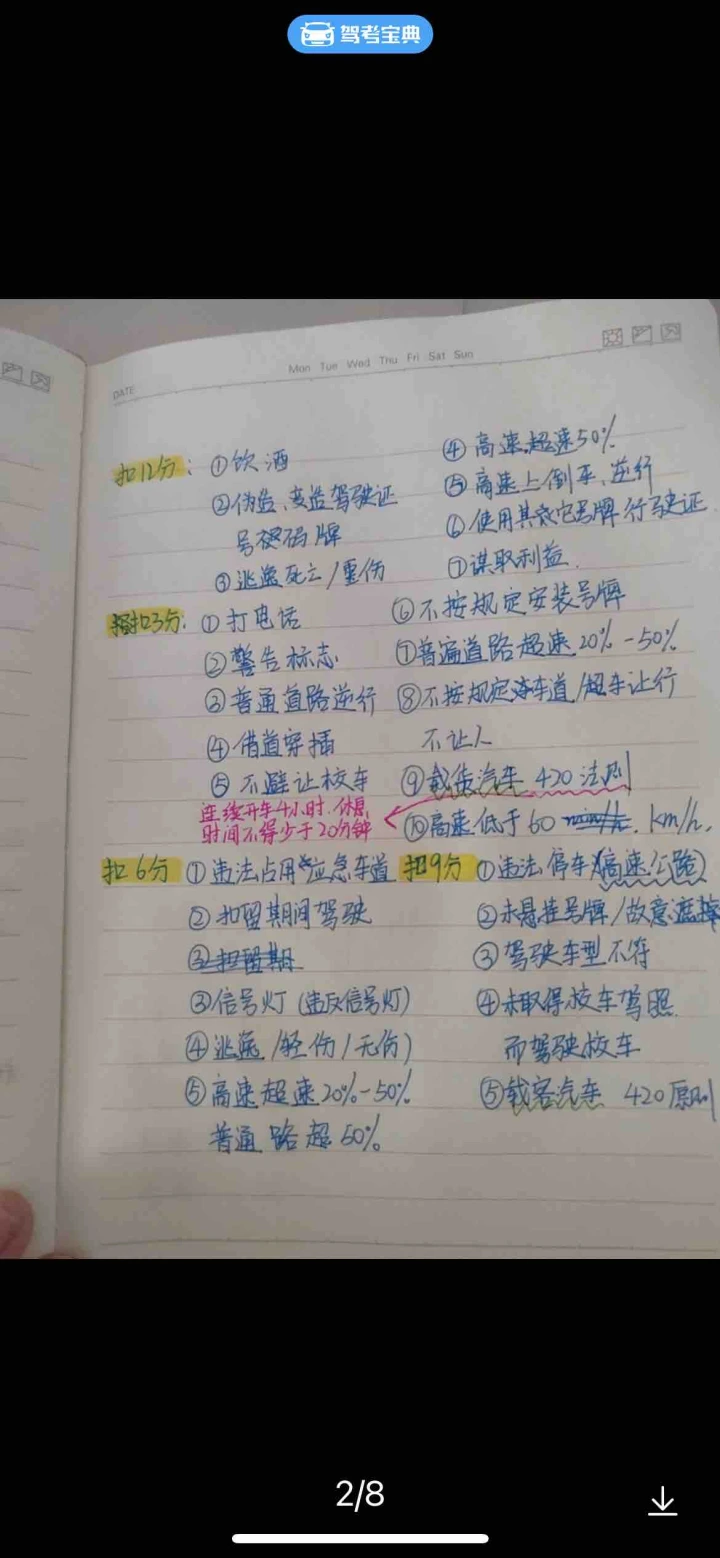 驾考宝典
Mon Tue Wed Thu Fri Sat Sun
DATE
扣12分：①饮酒
②伪造、变造驾驶证
号码牌
③逃逸死亡/重伤
④高速超速50%
⑤高速上倒车、逆行
⑥使用其它号牌行驶证
⑦谋取利益.
扣3分：①打电话
②警告标志
③普通道路逆行
④借道穿插
⑤不避让校车
⑥不按规定安装号牌
⑦普遍道路超速20%-50%
⑧不按规定 车道/超车让行
不让人
⑨载货汽车 420法则
连续开车4小时.休息
时间不得少于20分钟
⑩高速低于60 km/h.
扣6分 ①违法占用应急车道
②扣留期间驾驶
③扣留期
③信号灯（违反信号灯）
④逃逸/轻伤/无伤）
⑤高速超速20%-50%
普通路超50%
扣9分 ①违法停车（高速公路）
②未悬挂号牌/故意遮挡
③驾驶车型不符
④未取得校车驾照
而驾驶校车
⑤载客汽车 420原则
2/8